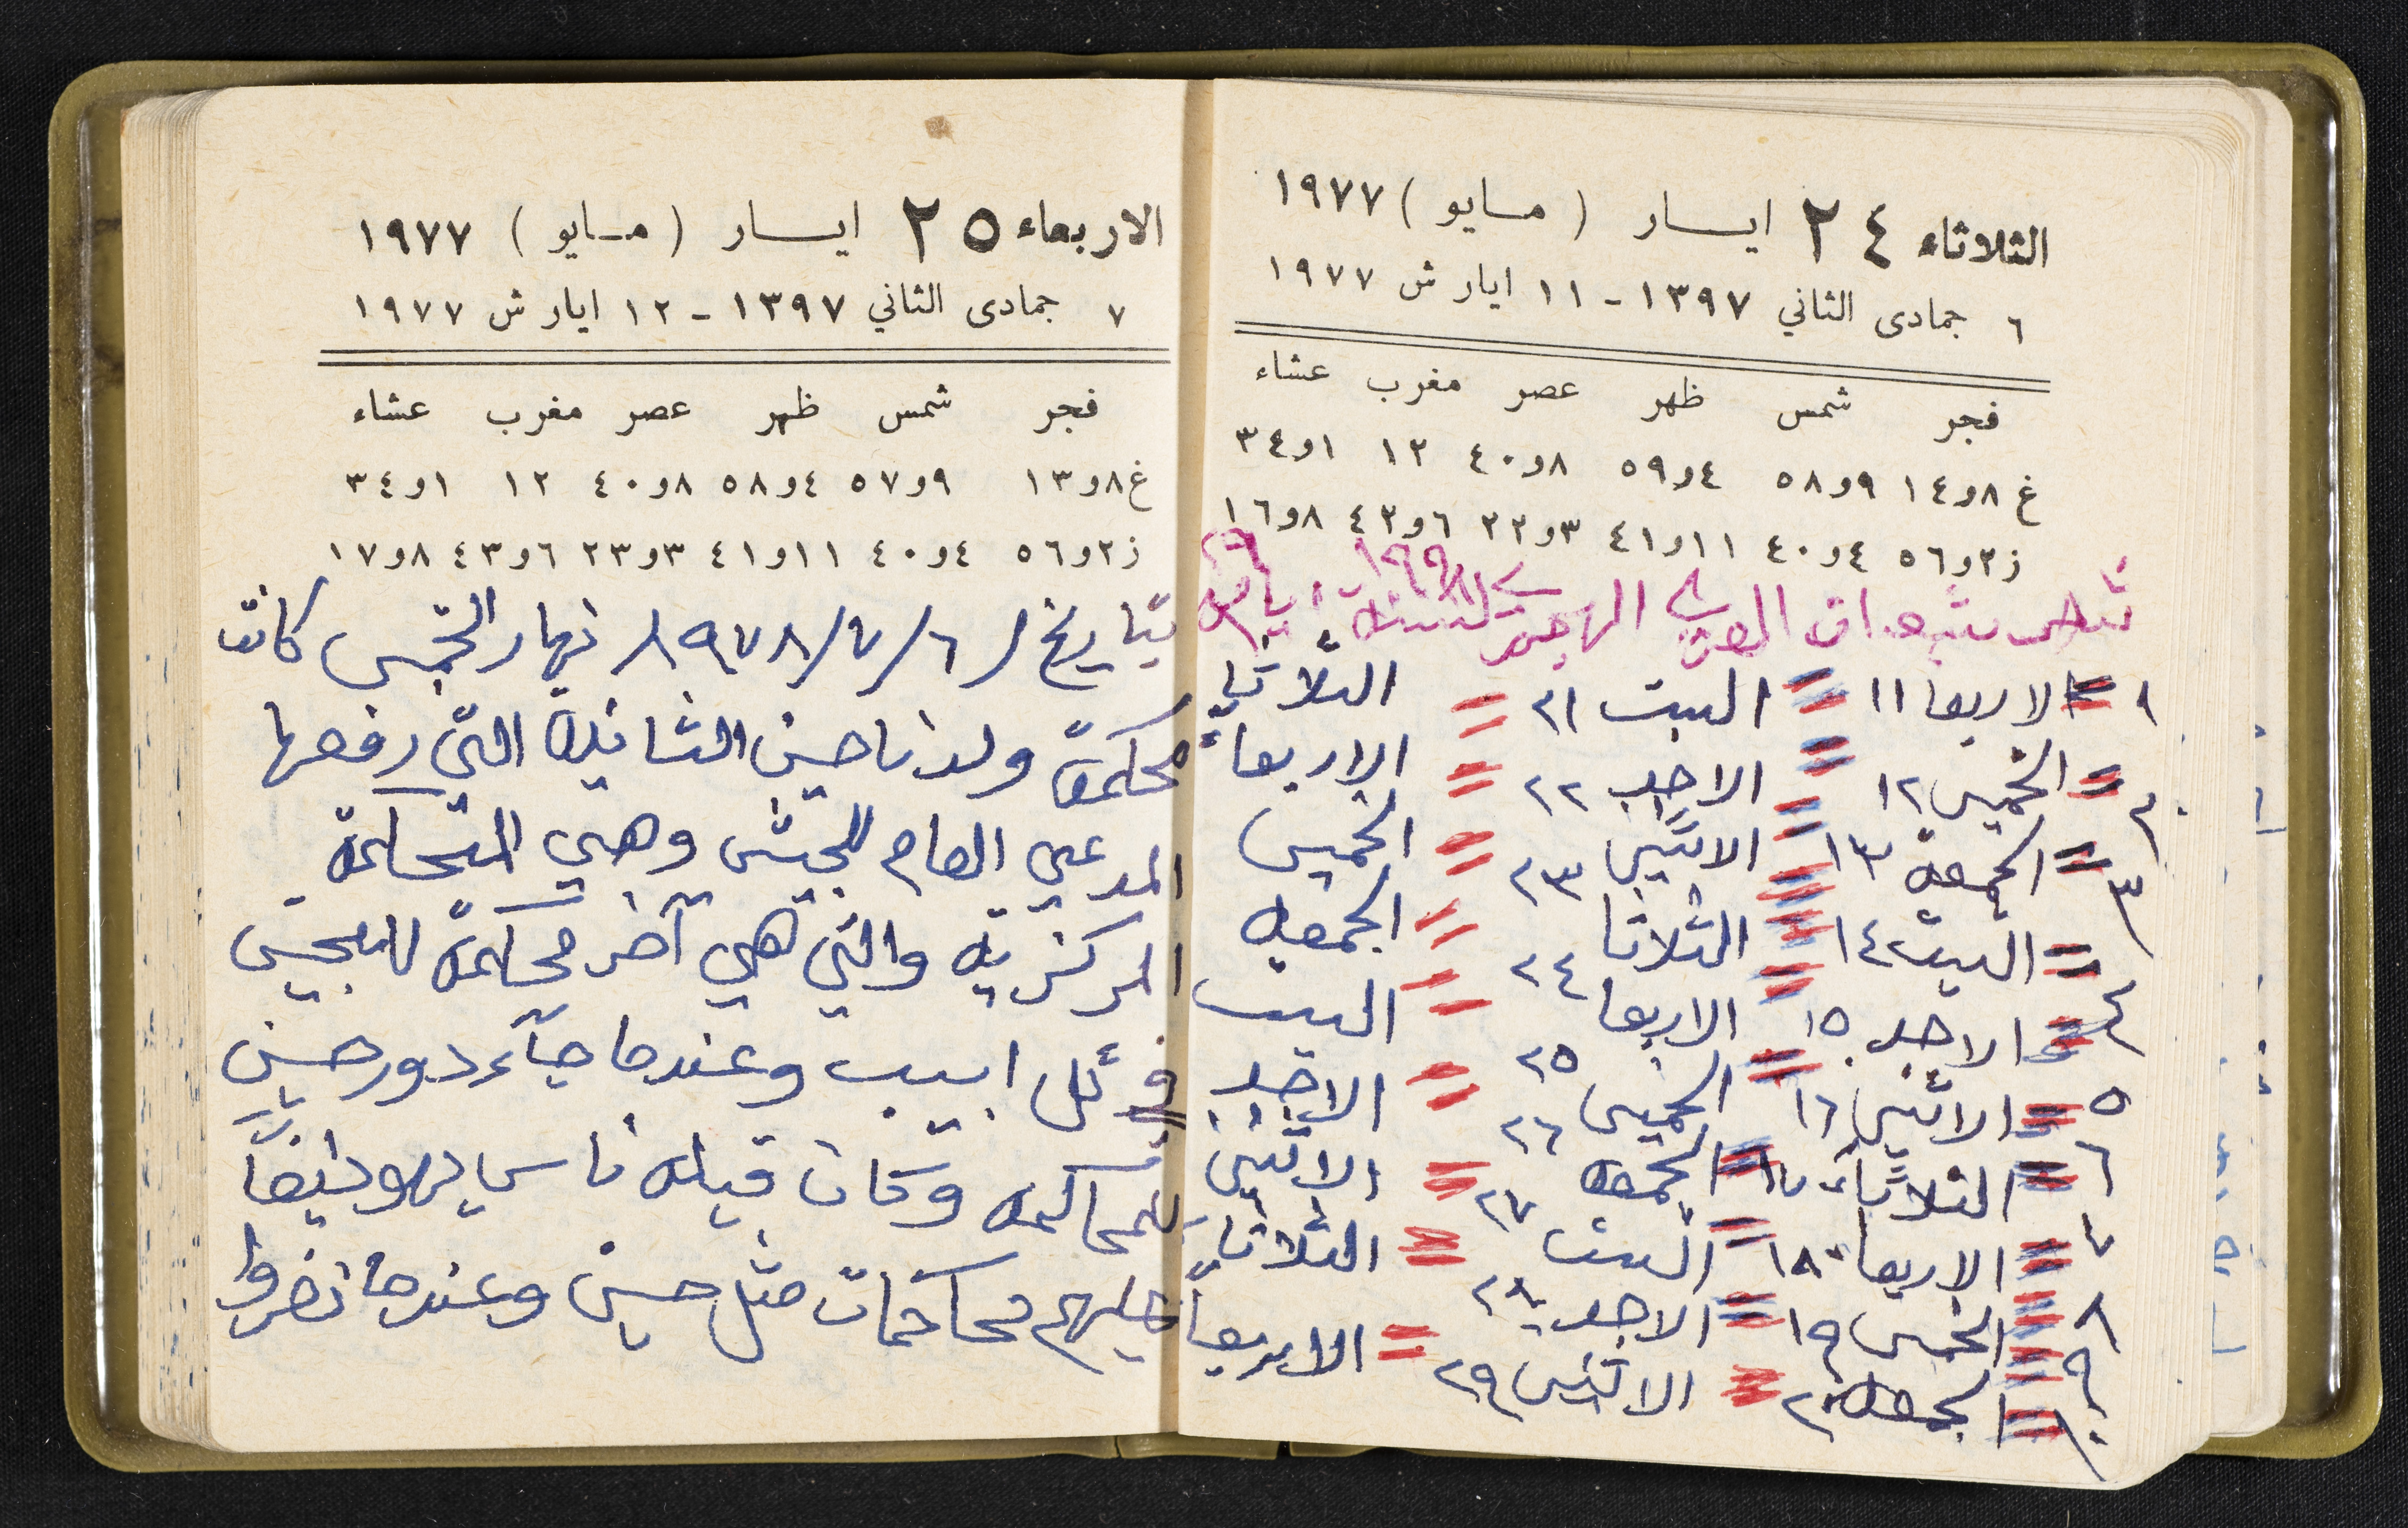 الثلاثاء ٢٤ ايـــار (مـايو) ١٩٧٧
٦ جمادى الثاني ١٣٩٧ - ١١ ايار ش ١٩٧٧
فجر شمس ظهر عصر مغرب عشاء
غ ٨و١٤ ٩و٥٨ ٤و٥٩ ٨و٤٠ ١٢ ١و٣٤
ز ٢و٥٦ ٤و٤٠ ١١و٤١ ٣و٢٢ ٦و٤٢ ٨و١٦
شهر شعبان العربي الهجري لسنة ١٩٩٨ ايام ٢٩
١ = الاربعا ١١ = السبت ٢١ = الثلاثا
٢ = الخميس ١٢ = الاحد ٢٢ = الاربعاء
٣ = الجمعه ١٣ = الاثنين ٢٣ = الخميس
٤ = السبت ١٤ = الثلاثا ٢٤ = الجمعه
٥ = الاحد ١٥ = الاربعا ٢٥ = السبت
٦ = الاثنين ١٦ = الخميس ٢٦ = الاحد
٧ = الثلاثاء ١٧ = الجمعه ٢٧ = الاثنين
٨ = الاربعاء ١٨ = السبت ٢٨ = الثلاثاء
٩ = الخميس ١٩ = الاحد ٢٩ = الاربعا
١٠ = الجمعه ٢٠ = الاثنين
الاربعاء ٢٥ ايـــار (مـايو) ١٩٧٧
٧ جمادى الثاني ١٣٩٧ - ١٢ ايار ش ١٩٧٧
فجر شمس ظهر عصر مغرب عشاء
غ ٨و١٣ ٩و٥٧ ٤و٥٨ ٨و٤٠ ١٢ ١و٣٤
ز ٢و٥٦ ٤و٤٠ ١١و٤١ ٣و٢٣ ٦و٤٣ ٨و١٧
بتاريخ ٦/٧/١٩٧٨ نهار الخميس كانت
محكمة ولدنا حسن الثانية التي رفعها
المدعي العام للجيش وهي المحاكمة
المركزيه والتي هي آخر محاكمة للجيش
في تل ابيب وعندما جآء دور حسن
للمحاكمه وكان قبله ناس يهود ايضاً
عليهم محاكمات مثل حسن وعندما نضروا